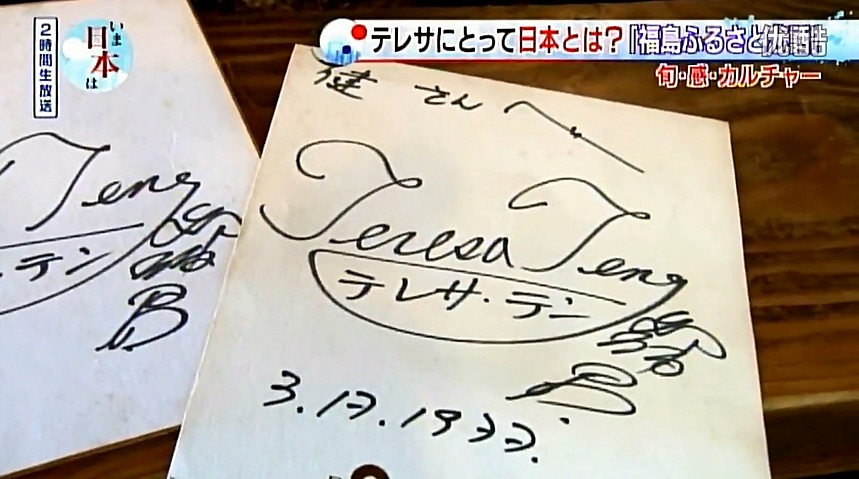 いま
日本
は
2時間生放送
テレサにとって日本とは?「福島ふるさと
旬・感・カルチャー
健 さんへ
Teresa Teng
テレサ・テン
3.17.1977.
Teng
・テン